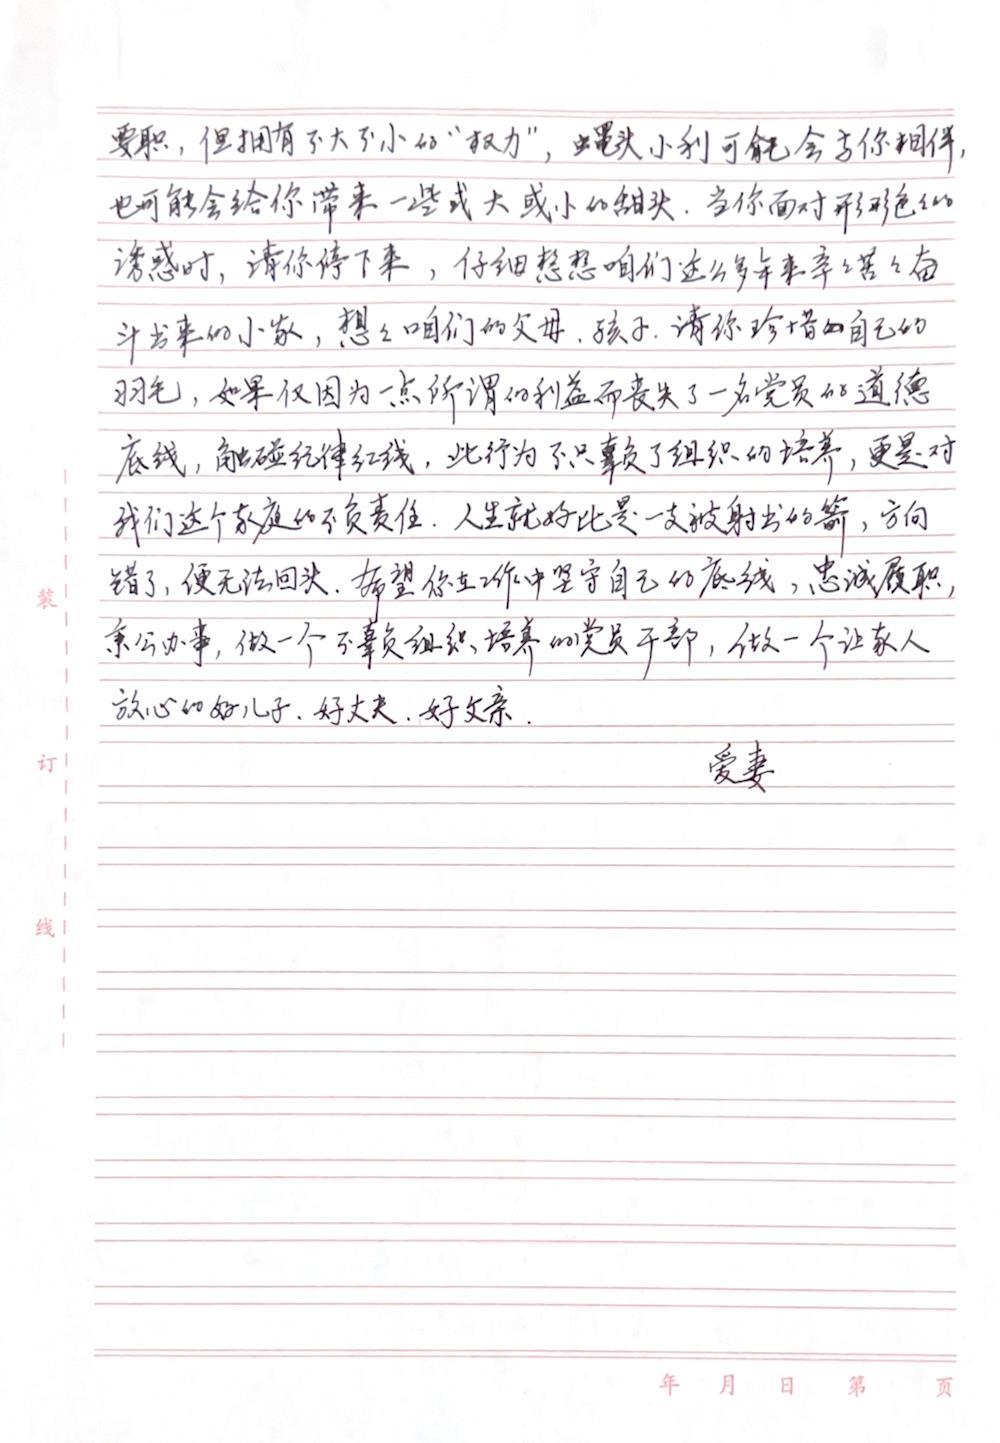 要职，但拥有不大不小的“权力”，蝇头小利可能会与你相伴，
也可能会给你带来一些或大或小的甜头．当你面对形形色々的
诱惑时，请你停下来，仔细想想咱们这么多年来辛々苦々奋
斗出来的小家，想々咱们的父母、孩子．请你珍惜自己的
羽毛，如果仅因为一点所谓的利益而丧失了一名党员的道德
底线，触碰纪律红线，此行为不只辜负了组织的培养，更是对
我们这个家庭的不负责任．人生就好比是一支被射出的箭，方向
错了，便无法回头．希望你在工作中坚守自己的底线，忠诚履职，
秉公办事，做一个不辜负组织培养的党员干部，做一个让家人
放心的好儿子、好丈夫、好父亲．
爱妻
装
订
线
年 月 日 第 页